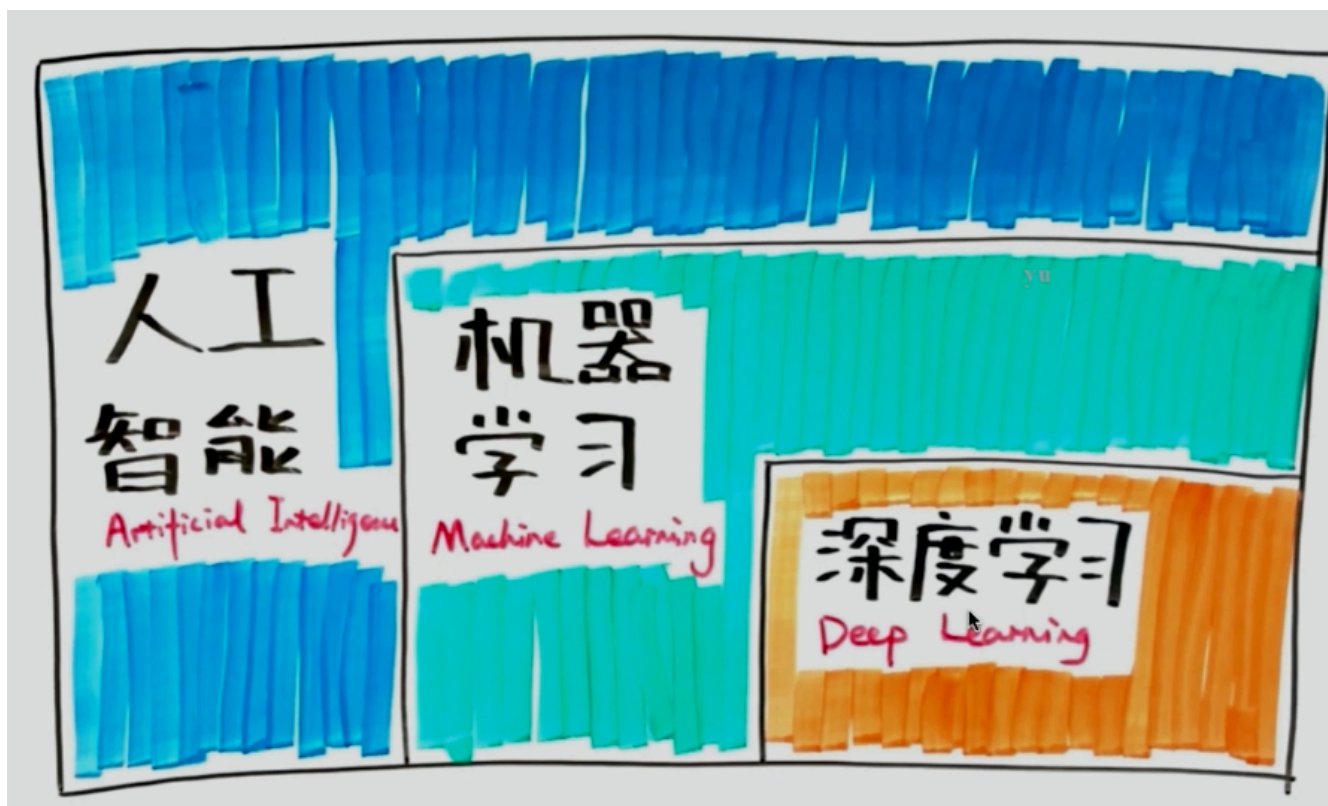 yu
人工
智能
Artificial Intelligence
机器
学习
Machine Learning
深度学习
Deep Learning